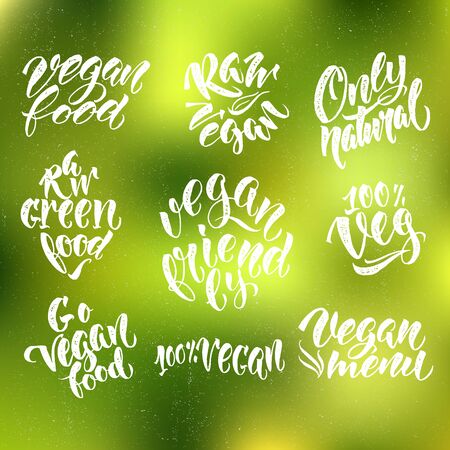 Vegan
food
Raw
Vegan
Only
natural
Raw
Green
food
Vegan
friend
ly
100%
Veg
Go
Vegan
food
100% Vegan
Vegan
menu